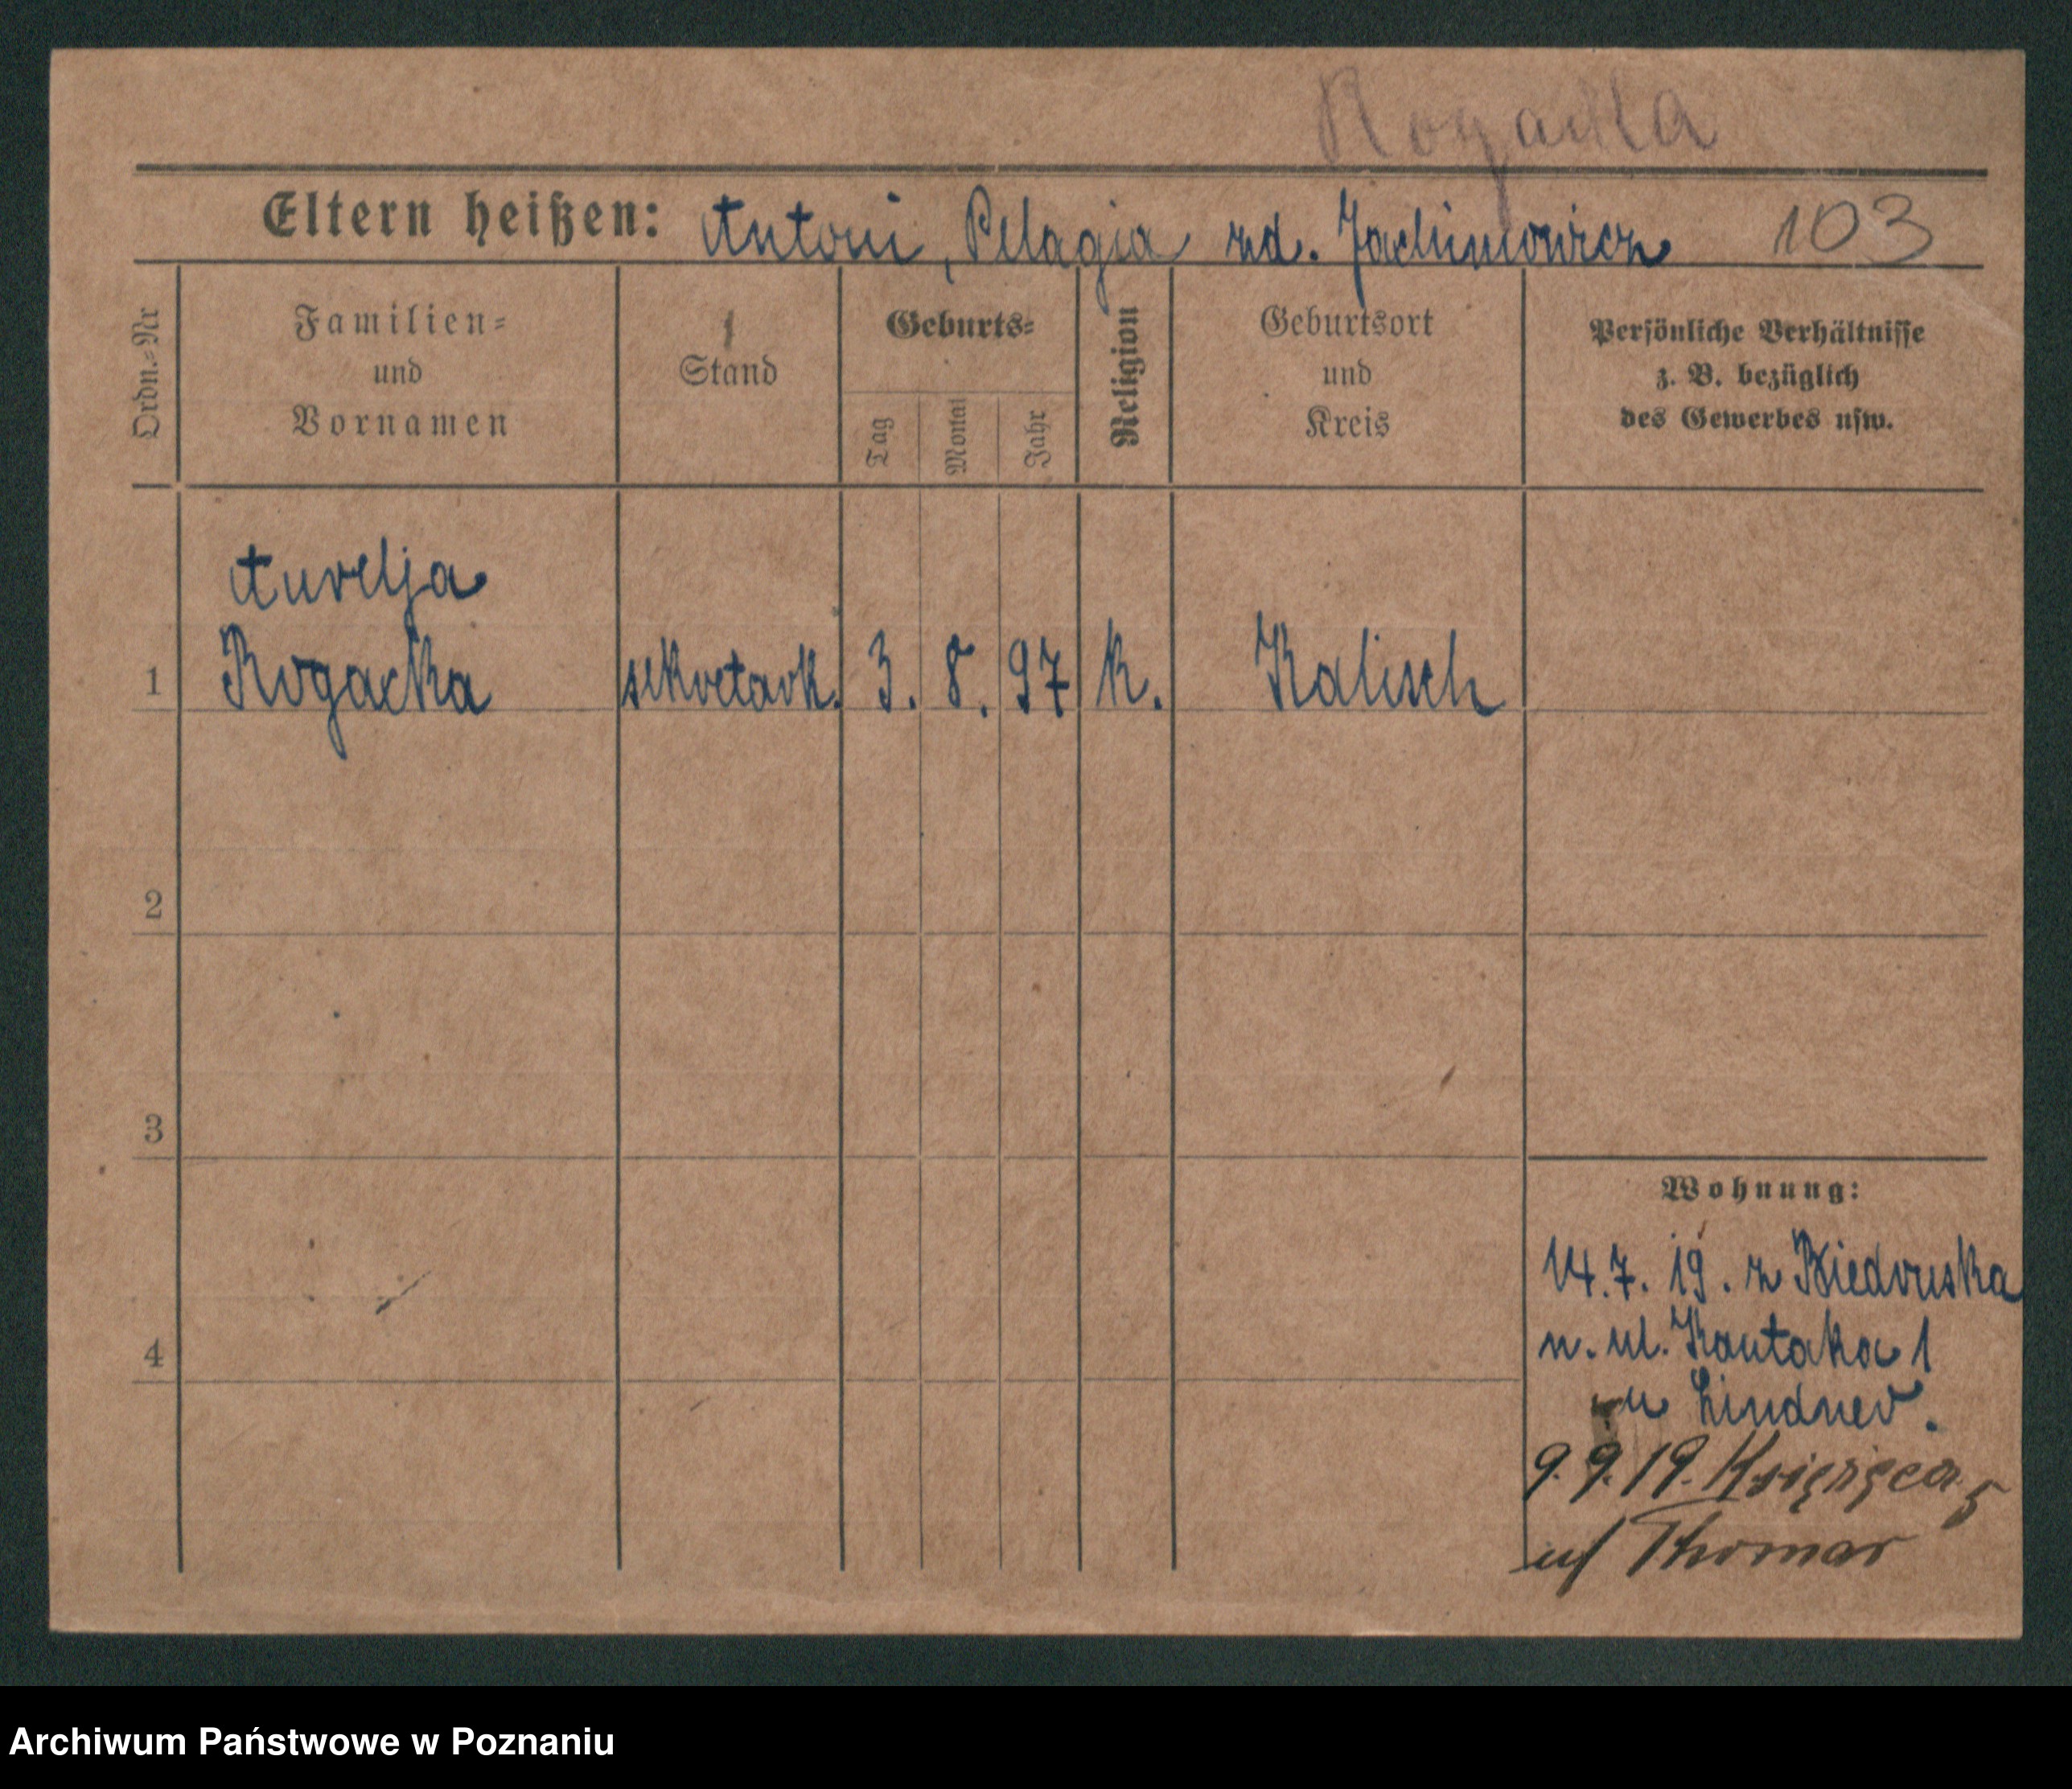 Rogacka
Eltern heißen: Antoni, Pelagia zd. Jachimowicz 103
Ordn.-Nr
Familien- und Vornamen
Stand
Geburts-
Tag
Monat
Jahr
Religion
Geburtsort und Kreis
Persönliche Verhältnisse
z. B. bezüglich
des Gewerbes usw.
Aurelja
1 Rogacka sekretark. 3. 8. 97 k. Kalisch
2
3
4
Wohnung:
14.7.19. z Biedruska
n. ul. Kantaka 1
u Lindner.
9.9.19. Księżęca 5
Thomas
Archiwum Państwowe w Poznaniu